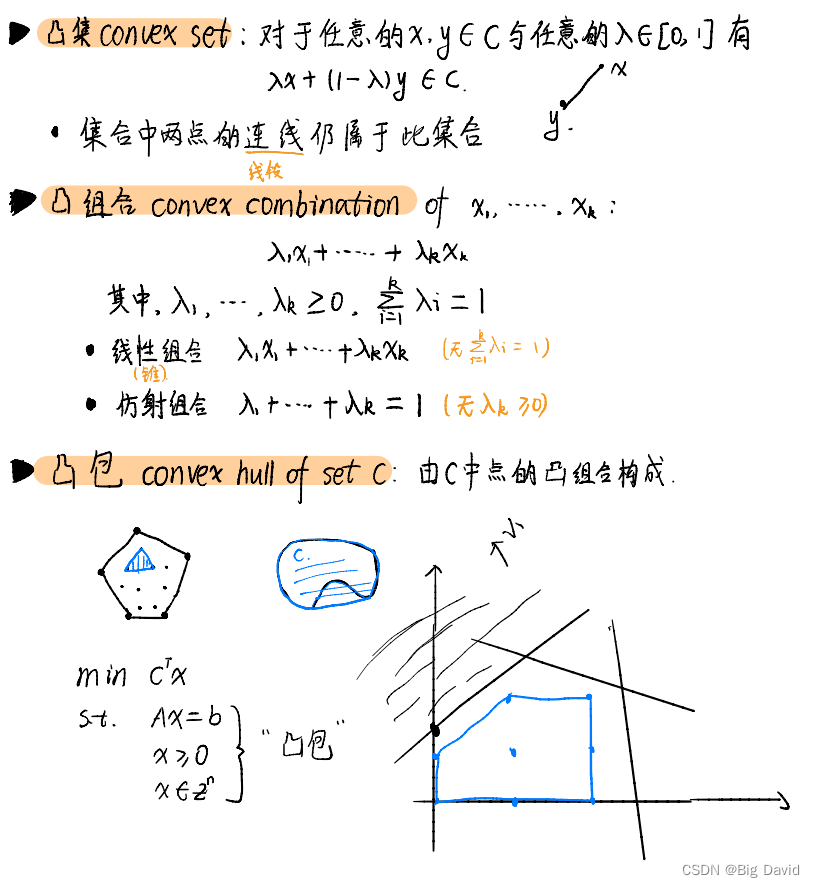 凸集 convex set：对于任意的x, y∈C与任意的λ∈[0,1]有
λx + (1-λ)y ∈ C.
x
y.
• 集合中两点的连线仍属于此集合
线段
凸组合 convex combination of x₁, ······, xₖ：
λ₁x₁+ ······ + λₖxₖ
其中, λ₁, ···, λₖ ≥0, ∑ᵢ₌₁ᵏ λi = 1
• 线性组合 λ₁x₁+ ···· +λₖxₖ (无∑ᵢ₌₁ᵏ λi = 1)
(锥)
• 仿射组合 λ₁+ ··· + λₖ = 1 (无λₖ ≥0)
凸包 convex hull of set C：由C中点的凸组合构成.
C.
min Cᵀx
s.t. Ax=b
x≥0
x∈zⁿ
"凸包"
CSDN @Big David